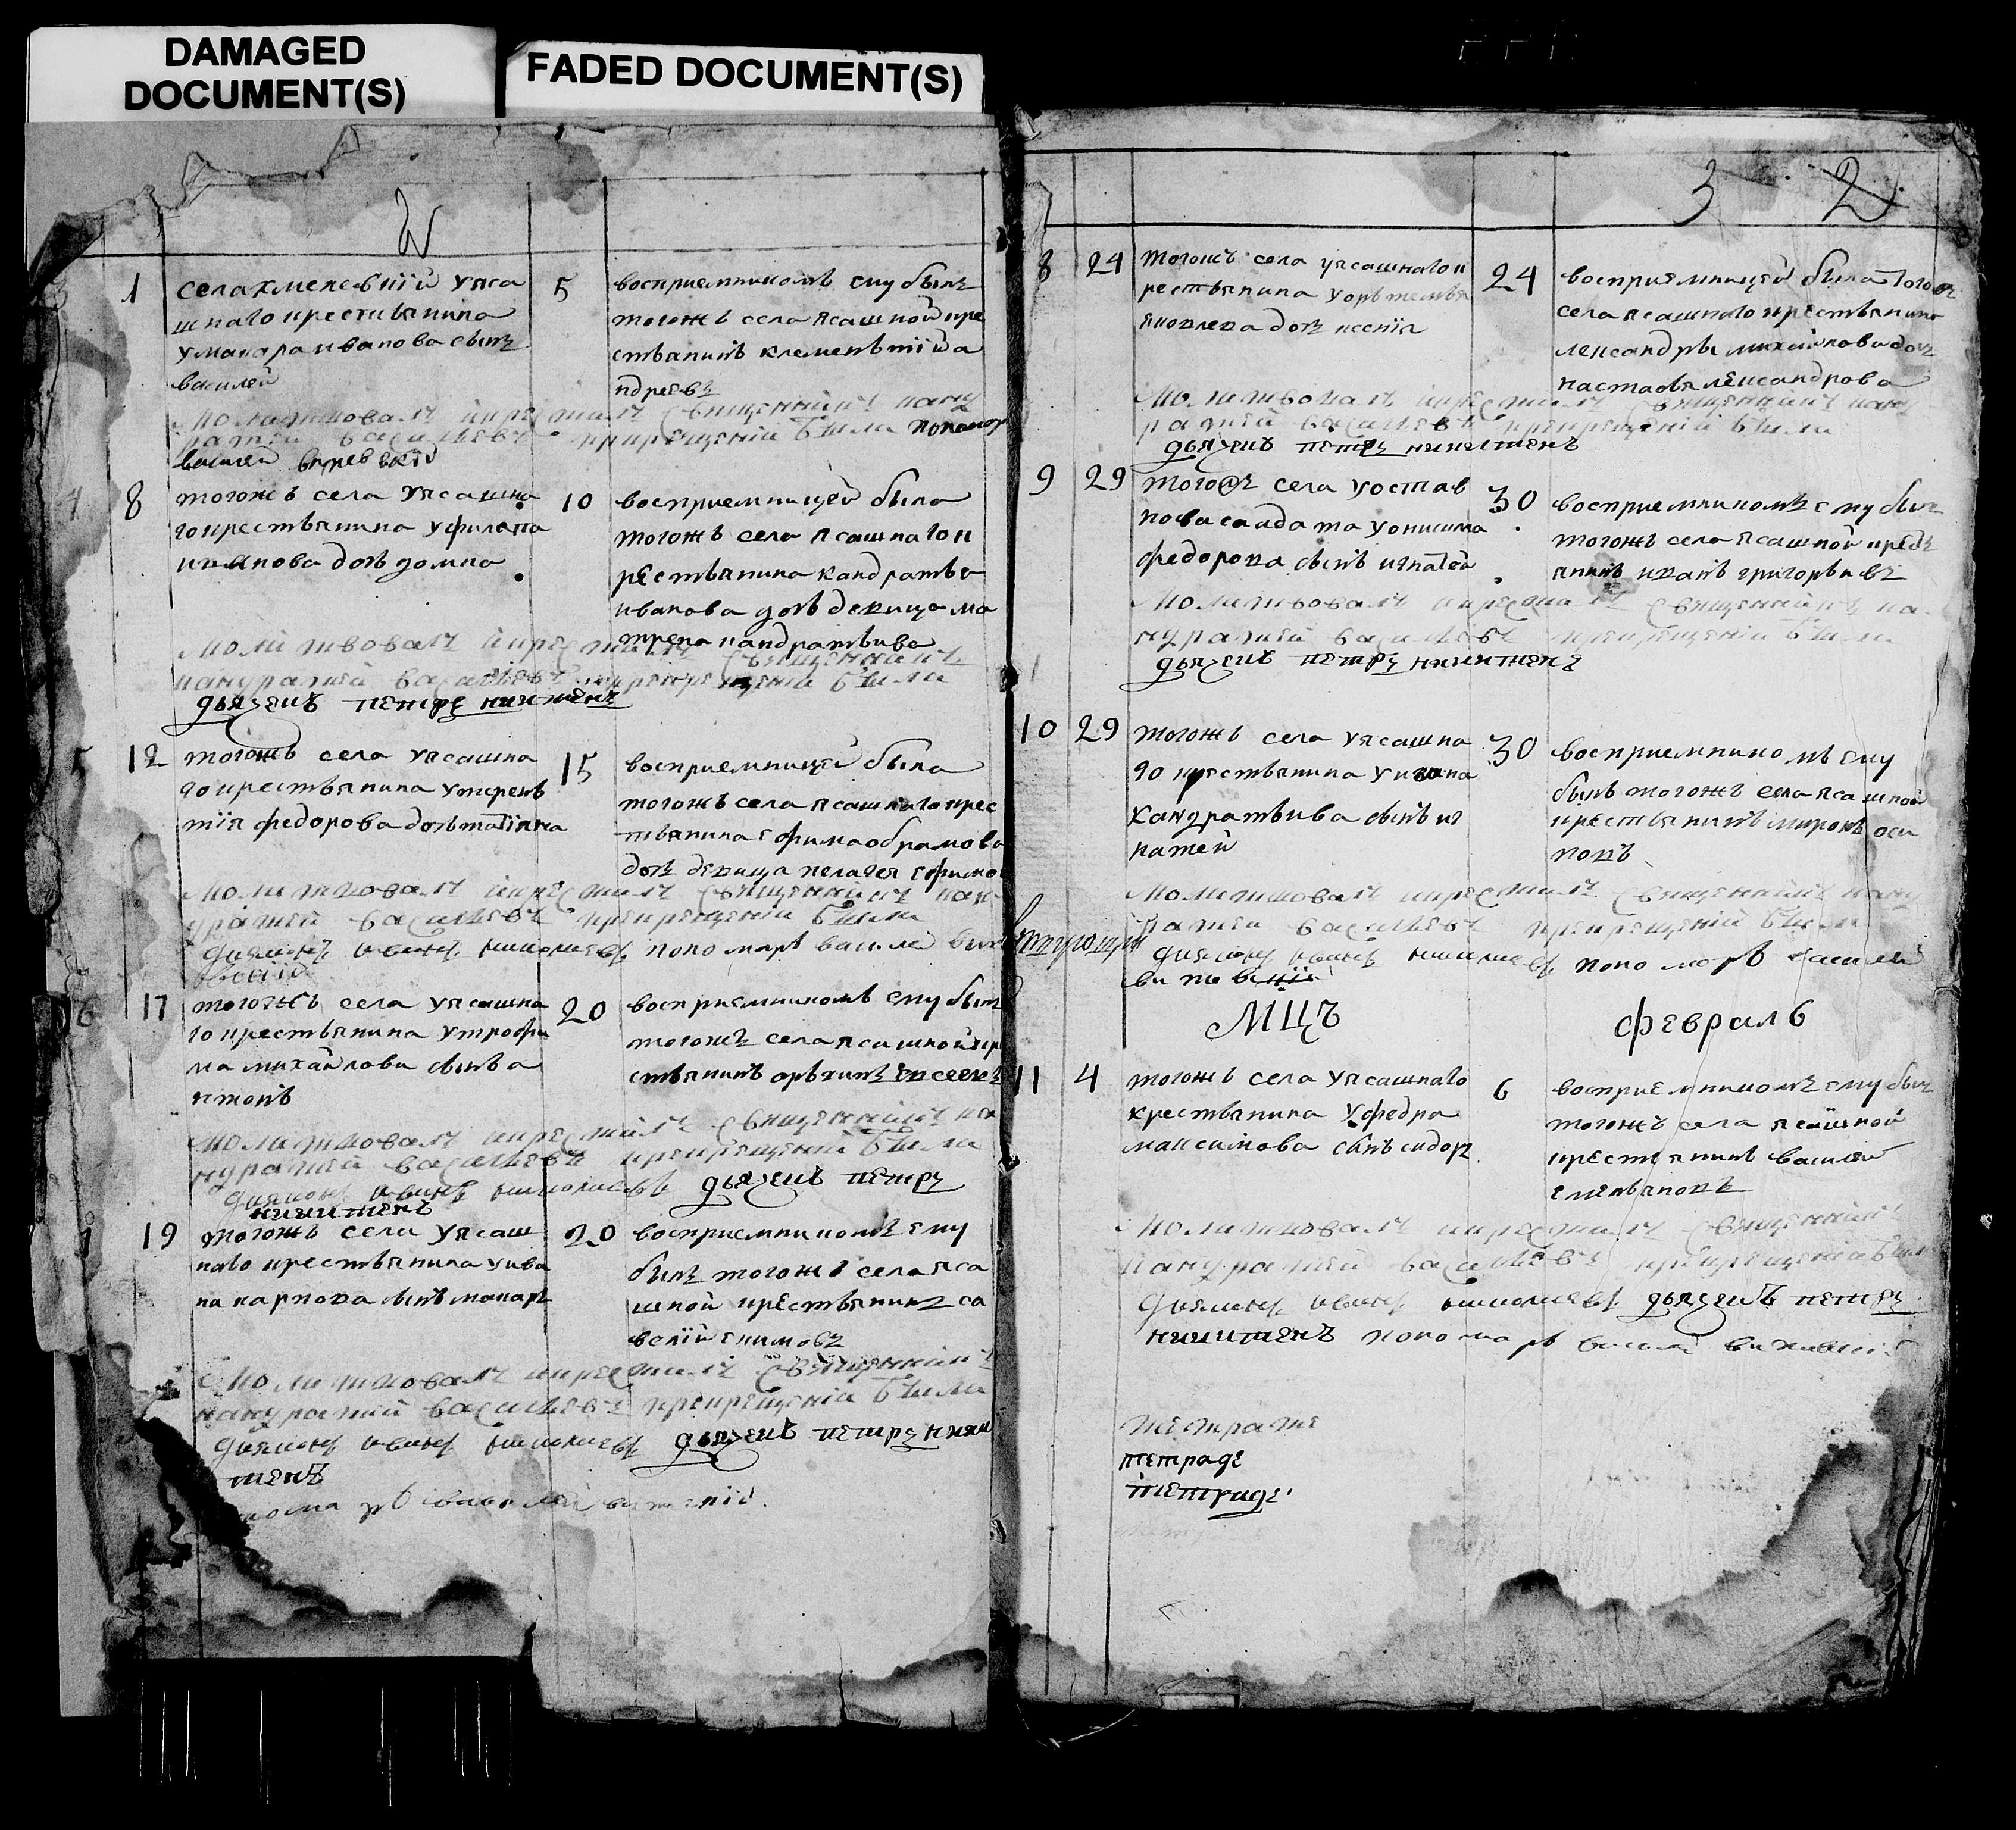 DAMAGED
DOCUMENT(S)
FADED DOCUMENT(S)
1
села хмелевкий уяса
шнаго крестьянина
умакара иванова сынъ
василей
5
восприемникомъ ему былъ
тогожъ села ясашной кре
стьянинъ клементий а
ндреевъ
молитвовалъ икрестилъ священникъ кану
ратей васильевъ прикрещении были пономоръ
василей
4 8
тогожъ села уясашна
го крестьянина уфилата
иванова дочь домна
10
восприемницей была
тогожъ села ясашнаго к
рестьянина кандратья
иванова дочь девица ма
трена кандратьива
молитвовалъ икрестилъ священникъ
кануратей васильевъ прикрещении были
дьячекъ петръ никитенъ
5 12
тогожъ села уясашна
го крестьянина утерень
тия федорова дочь татияна
15
восприемницей была
тогожъ села ясашнаго крес
тьянина ефима абрамова
дочь девица пелагея ефимо
молитвовалъ икрестилъ священникъ кан
уратей васильевъ прикрещении были
диаконъ иванъ николаевъ пономарь василей
6 17
тогожъ села уясашна
го крестьянина утрофи
ма михайлова сынъ а
нтонъ
20
восприемникомъ ему былъ
тогожъ села ясашной кр
стьянинъ архипъ евсеевъ
молитвовалъ икрестилъ священникъ ка
нуратей васильевъ прикрещении были
диаконъ иванъ николаевъ дьячекъ петръ
никитенъ
19
тогожъ села уясаш
наго крестьянина уива
на карпова сынъ макаръ
20
восприемникомъ ему
былъ тогожъ села яса
шной крестьянинъ са
велий екимовъ
молитвовалъ икрестилъ священникъ
кануратей васильевъ прикрещении были
диаконъ иванъ николаевъ дьячекъ петръ ники
тенъ
3 2
8 24
тогожъ села уясашнаго к
рестьянина уартемья
яковлева дочь ксения
24
восприемницей была тогожъ
села ясашнаго крестьянина
лександры михайлова дочь
настасья лександрова
молитвовалъ икрестилъ священникъ кану
ратей васильевъ прикрещении были
дьячекъ петръ никитенъ
9 29
тогожъ села уостав
нова салдата уонисима
федорова сынъ игнатей
30
восприемникомъ ему былъ
тогожъ села ясашной крес
янинъ иванъ григорьивъ
молитвовалъ икрестилъ священникъ ка
нуратей васильевъ прикрещении были
дьячекъ петръ никитенъ
10 29
тогожъ села уясашна
го крестьянина уивана
кандратьива сынъ иг
натей
30
восприемникомъ ему
былъ тогожъ села ясашной
крестьянинъ миронъ оси
повъ
молитвовалъ икрестилъ священникъ кану
ратей васильевъ прикрещении были
диаконъ иванъ николаевъ пономорь василей
МЦЪ февраль
11 4
тогожъ села уясашнаго
крестьянина уфедра
максимова сынъ сидоръ
6
восприемникомъ ему былъ
тогожъ села ясашной
крестянинъ василей
емельяновъ
молитвовалъ икрестилъ священникъ
кануратей васильевъ прикрещении были
диаконъ иванъ николаевъ дьячекъ петръ
никитенъ пономарь василей
тетрате
петраде